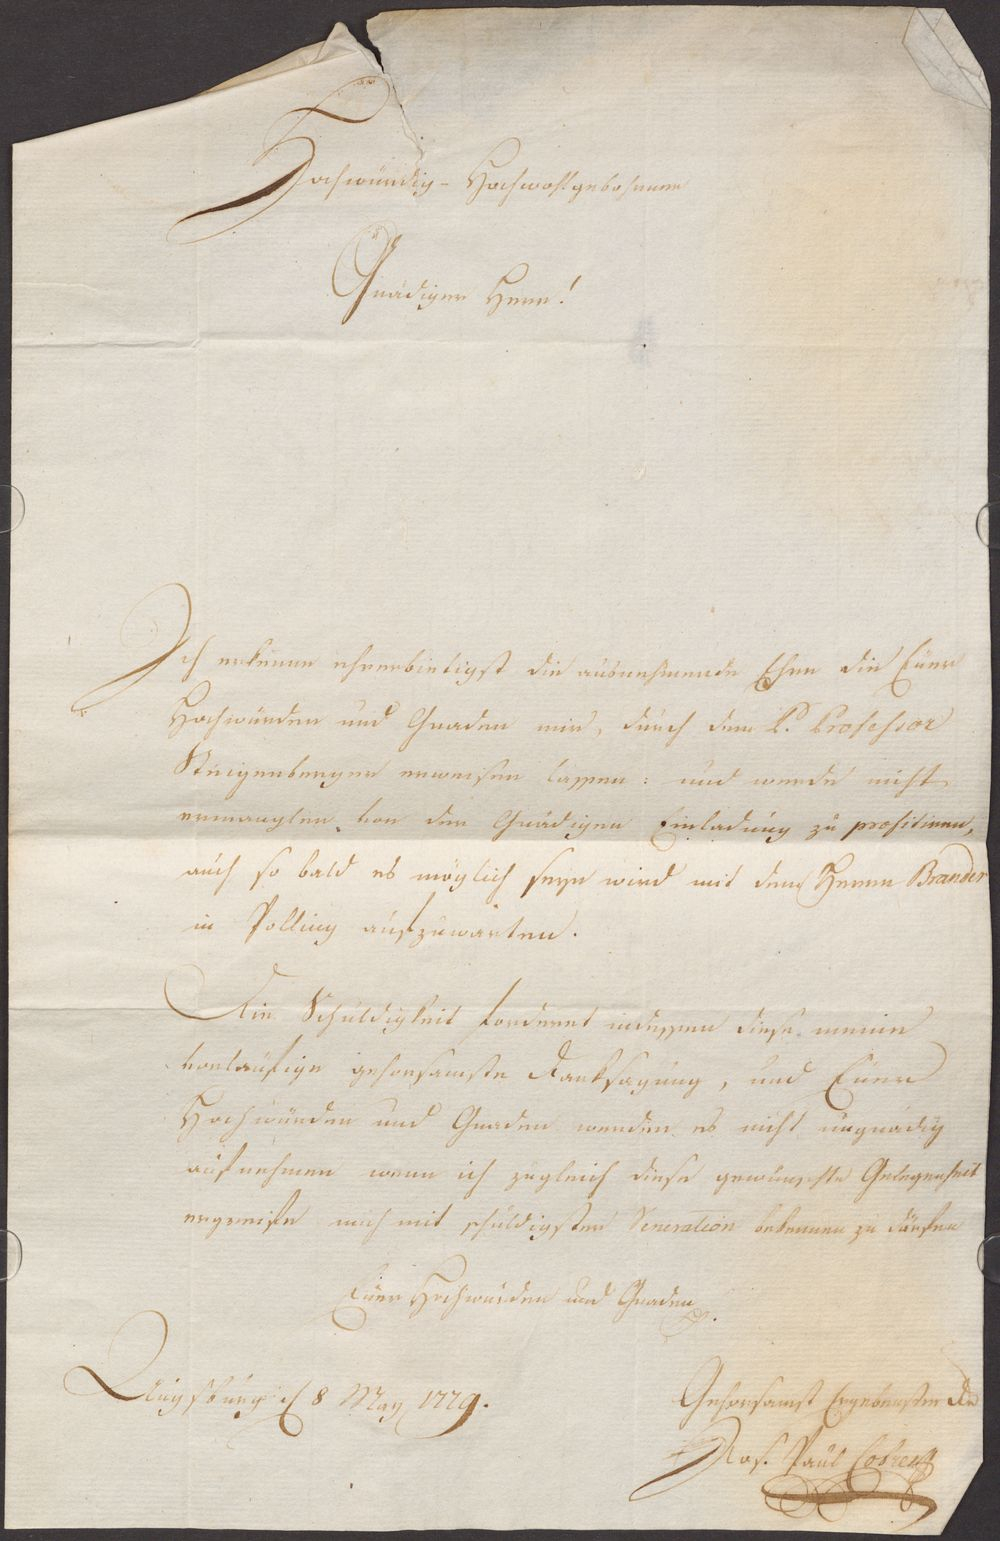 Hochwürdig- Hochwohlgebohrner
Gnädiger Herr!
Ich erkenne ehrerbietigst die ausnehmende Ehre die Euer
Hochwürden und Gnaden mir, durch den P. Professor
Steigenberger erweisen lassen: und werde nicht
ermanglen von der Gnädigen Einladung zu profitiren,
auch so bald es möglich seyn wird mit dem Herrn Brander
in Polling aufzuwarten.
Die Schuldigkeit forderet indessen diese meine
vorläufige gehorsamste Danksagung, und Euer
Hochwürden und Gnaden werden es nicht ungnädig
aufnehmen wenn ich zugleich diese gewünschte Gelegenheit
ergreife mich mit schuldigster Veneration bekennen zu dörfen
Euer Hochwürden und Gnaden
Augsburg d 8 May 1779.
Gehorsamst Ergebenster Dr
Jos. Paul